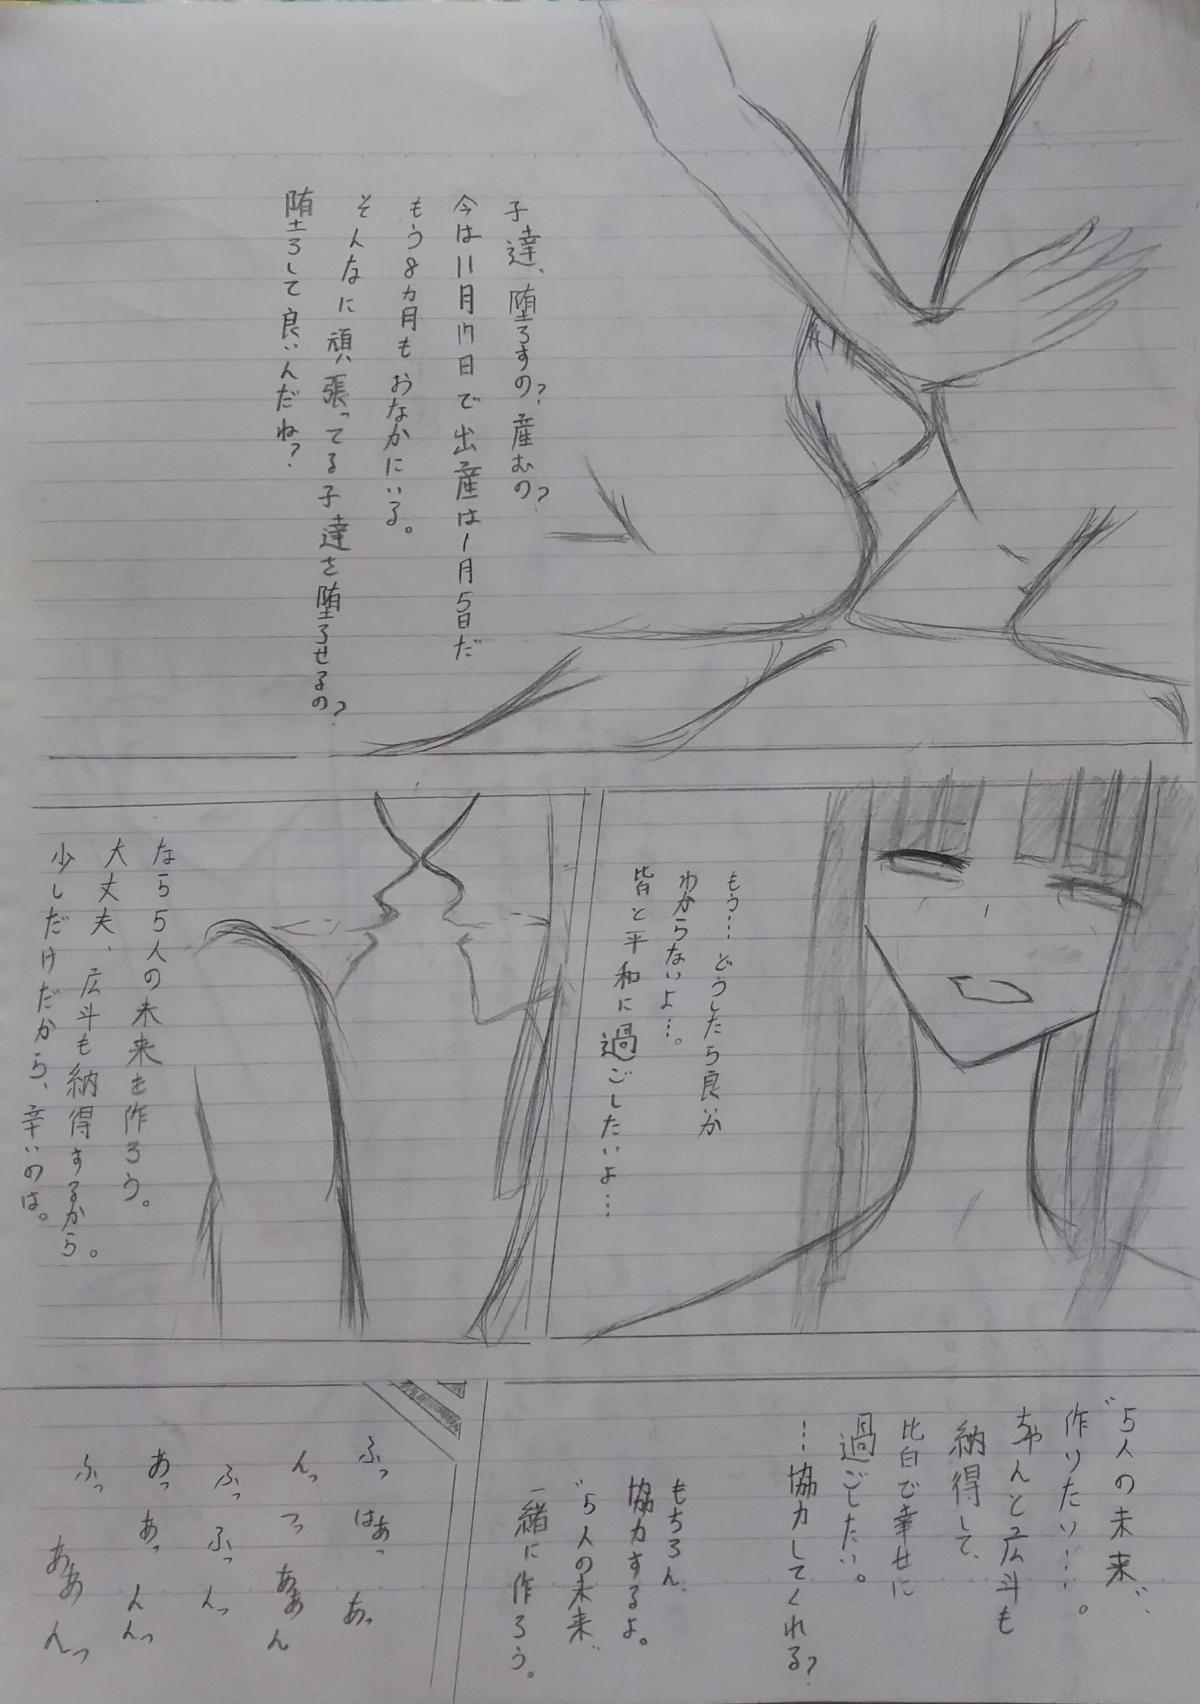 子達、堕ろすの？産むの？
今は11月17日で出産は1月5日だ
もう8ヵ月もおなかにいる。
そんなに頑張ってる子達を堕ろせるの？
堕ろして良いんだね？
もう…どうしたら良いか
わからないよ…。
皆と平和に過ごしたいよ…
なら5人の未来を作ろう。
大丈夫、広斗も納得するから。
少しだけだから、辛いのは。
〝5人の未来〟、
作りたい…。
ちゃんと広斗も
納得して、
皆で幸せに
過ごしたい。
…協力してくれる？
もちろん、
協力するよ。
〝5人の未来〟
一緒に作ろう。
ふっ はあっ あっ
んっ つっ ああん
ふっ ふっ んっ
あっ あっ んんっ
ふっ ああんっ